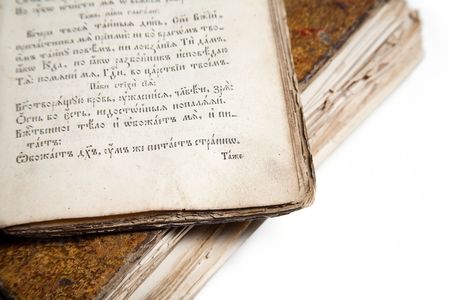 Вечери твоеѧ̀ та́йныѧ дне́сь, Сн҃е Бж҃їй
прича́стника мѧ̀ прїимѝ: ни бо врагѡ́мъ тво-
и́мъ та́йнꙋ повѣ́мъ, ни лобза́нїѧ Ти да́мъ,
ꙗ҆́кѡ І҆ꙋ́да, но ꙗ҆́кѡ разбо́йникъ и҆сповѣ́даю
Тѧ̀: помѧни́ мѧ, Гдⷭ҇и, во црⷭ҇твїи твое́мъ.
Па́ки стїхѝ сїѧ̑:
Бг҃отворѧ́щꙋю кро́вь, ᲂу҆жасни́сѧ, человѣ́че, зрѧ̀:
Ѻ҆́гнь бо є҆́сть, недостѡ́йныѧ попалѧ́ѧй.
Бж҃твенное тѣ́ло и҆ ѡ҆божа́етъ мѧ̀, и҆ пи-
та́етъ:
Ѡ҆божа́етъ дх҃ъ, ᲂу҆́мъ же пита́етъ стра́ннѡ.
Та́же